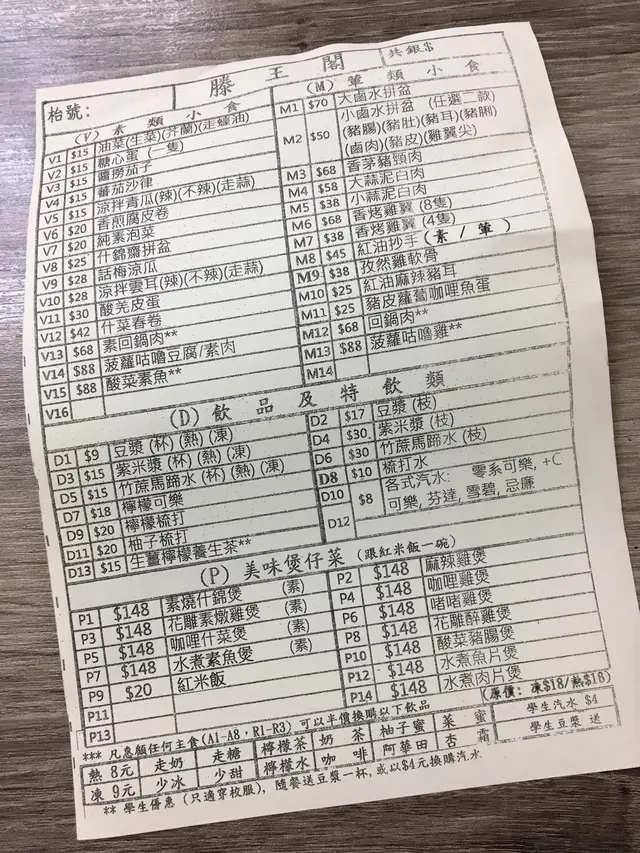 枱號:
滕王閣
共銀$
(V) 素類小食
V1 $15 油菜(生菜)(芥蘭)(走蠔油)
V2 $15 糖心蛋 (一隻)
V3 $15 醬撈茄子
V4 $15 蕃茄沙律
V5 $15 涼拌青瓜(辣)(不辣)(走蒜)
V6 $20 香煎腐皮卷
V7 $20 純素泡菜
V8 $25 什錦齋拼盆
V9 $28 話梅涼瓜
V10 $28 涼拌雲耳(辣)(不辣)(走蒜)
V11 $30 酸羌皮蛋
V12 $42 什菜春卷
V13 $68 素回鍋肉**
V14 $88 菠蘿咕嚕豆腐/素肉
V15 $88 酸菜素魚**
V16
(M) 葷類小食
M1 $70 大鹵水拼盆
M2 $50 小鹵水拼盆 (任選二款)
(豬腸)(豬肚)(豬耳)(豬脷)
(鹵肉)(豬皮)(雞翼尖)
M3 $68 香茅豬頸肉
M4 $58 大蒜泥白肉
M5 $38 小蒜泥白肉
M6 $68 香烤雞翼 (8隻)
M7 $38 香烤雞翼 (4隻)
M8 $45 紅油抄手(素/葷)
M9 $38 孜然雞軟骨
M10 $25 紅油麻辣豬耳
M11 $25 豬皮蘿蔔咖喱魚蛋
M12 $68 回鍋肉**
M13 $88 菠蘿咕嚕雞**
M14
(D) 飲品及特飲類
D1 $9 豆漿 (杯) (熱) (凍)
D3 $15 紫米漿 (杯) (熱) (凍)
D5 $15 竹蔗馬蹄水 (杯) (熱) (凍)
D7 $18 檸檬可樂
D9 $20 檸檬梳打
D11 $20 柚子梳打
D13 $15 生薑檸檬養生茶**
D2 $17 豆漿 (枝)
D4 $30 紫米漿 (枝)
D6 $30 竹蔗馬蹄水 (枝)
D8 $10 梳打水
D10 $8 各式汽水: 零系可樂, +C
可樂, 芬達, 雪碧, 忌廉
D12
(P) 美味煲仔菜 (跟紅米飯一碗)
P1 $148 素燒什錦煲 (素)
P3 $148 花雕素燉雞煲 (素)
P5 $148 咖喱什菜煲 (素)
P7 $148 水煮素魚煲 (素)
P9 $20 紅米飯
P11
P13
P2 $148 麻辣雞煲
P4 $148 咖喱雞煲
P6 $148 啫啫雞煲
P8 $148 花雕醉雞煲
P10 $148 酸菜豬腸煲
P12 $148 水煮魚片煲
P14 $148 水煮肉片煲
*** 凡惠顧任何主食(A1-A8，R1-R3) 可以半價換購以下飲品 (原價: 凍$18/熱$18)
熱 8元 走奶 走糖 檸檬茶 奶茶 柚子蜜 菜蜜 學生汽水 $4
凍 9元 少冰 少甜 檸檬水 咖啡 阿華田 杏霜 學生豆漿 送
** 學生優惠 (只適穿校服), 隨餐送豆漿一杯, 或以$4元換購汽水